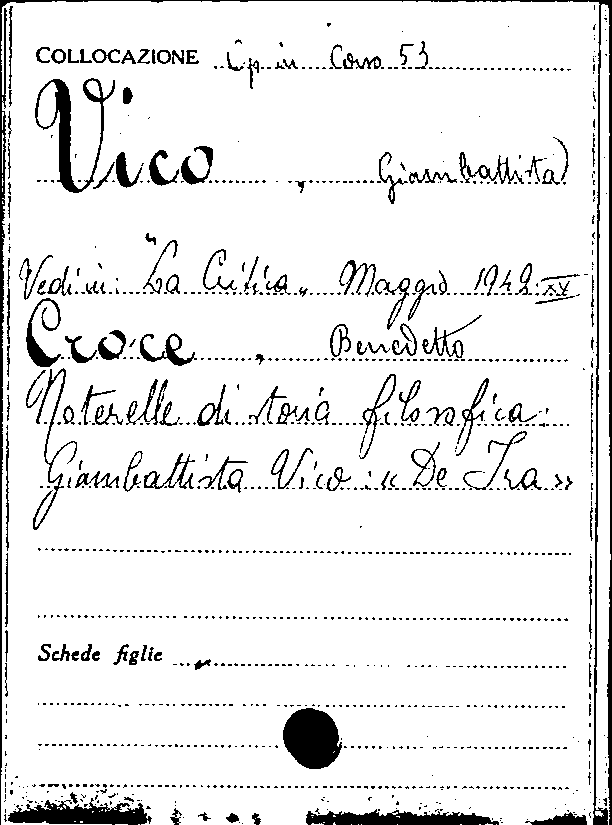 COLLOCAZIONE Cp in Cons 53
Vico, Giambattista
Vedi in: "La Critica„ Maggio 1942 XX
Croce, Benedetto
Noterelle di storia filosofica:
Giambattista Vico: « De Ira »
Schede figlie